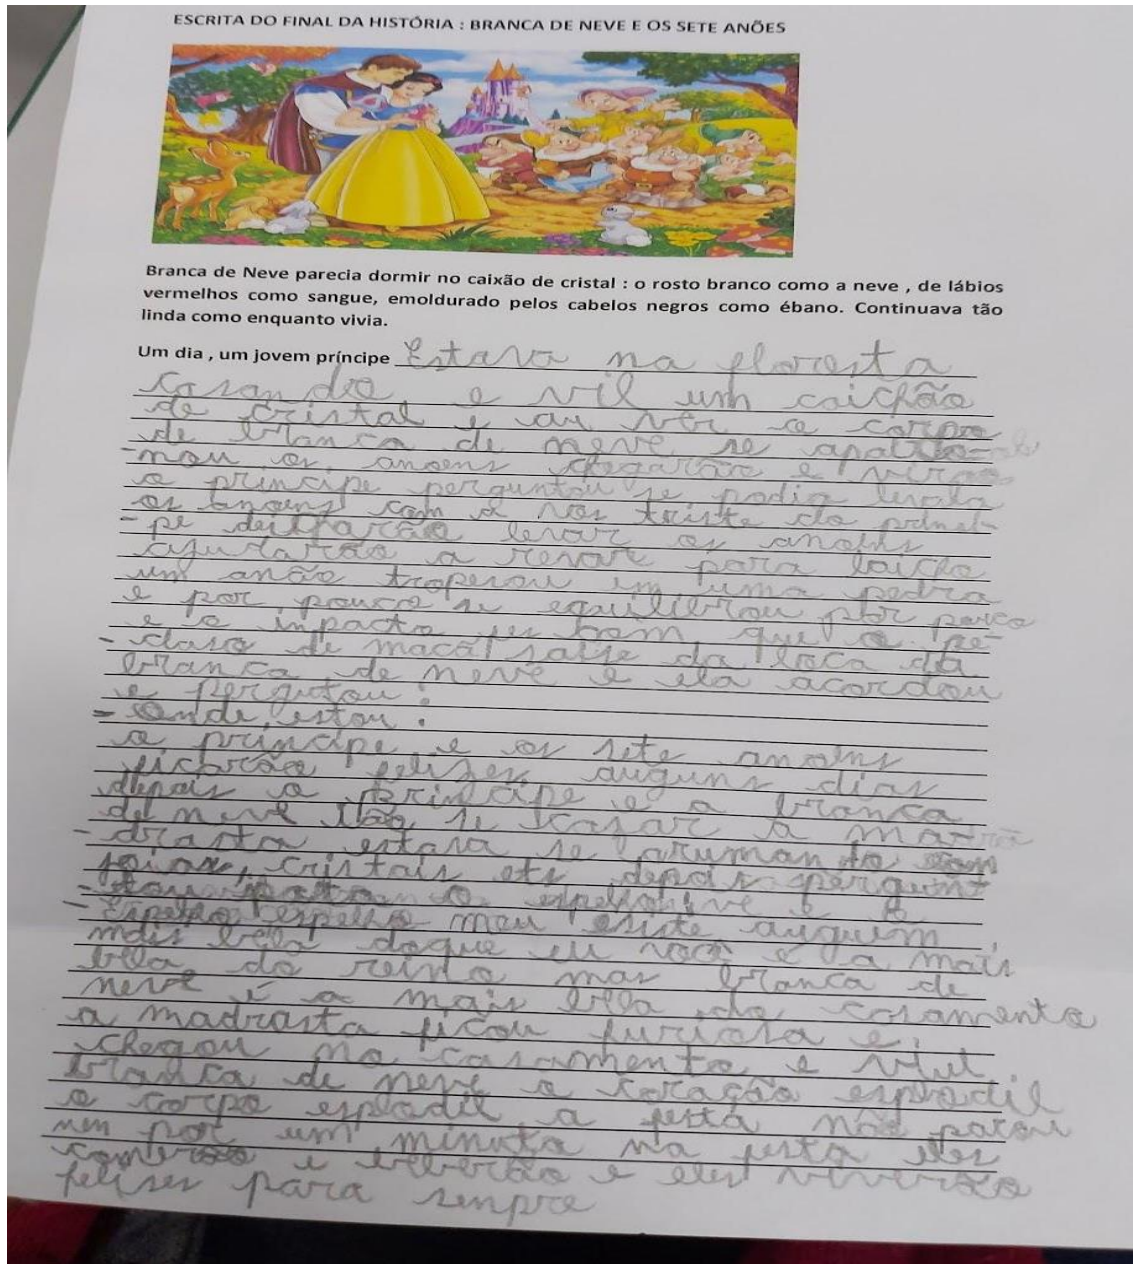 ESCRITA DO FINAL DA HISTÓRIA : BRANCA DE NEVE E OS SETE ANÕES
Branca de Neve parecia dormir no caixão de cristal : o rosto branco como a neve , de lábios
vermelhos como sangue, emoldurado pelos cabelos negros como ébano. Continuava tão
linda como enquanto vivia.
Um dia , um jovem príncipe Estava na floresta
casando e vil um caichão
de cristal e au ver o corpo
de branca de neve se apaicho-
-nou os anoens chegarão e virão
o principe perguntou se podia levala
os anoens com a vos triste do prinsi-
-pe deicharão levar os anoens
ajudarão a levar para
um anão tropesou em uma pedra
e por pouco se equilibrou por pouco
e o inpacto fes com que o pe-
-daso de maçã saise da boca da
branca de neve e ela acordou
e pergutou:
- Onde estou.
o príncipe e os sete anoens
ficarão felises auguns dias
depois o principe e a branca
de neve vão se casar a madra
-drasta estava se arumando com
joias, cristais ets depois pergunt
-tou o espelho
- Espelho espelho meu esiste auguem
mais bela doque eu você é a mais
bela do reino mas branca de
neve é a mais bela do casamento
a madrasta ficou furiosa e
chegou no casamento e viu
branca de neve o coração esplodil
o corpo esplodil a festa não parou
nem por um minuto na festa eles
comerão e beberão e eles viverão
felises para senpre